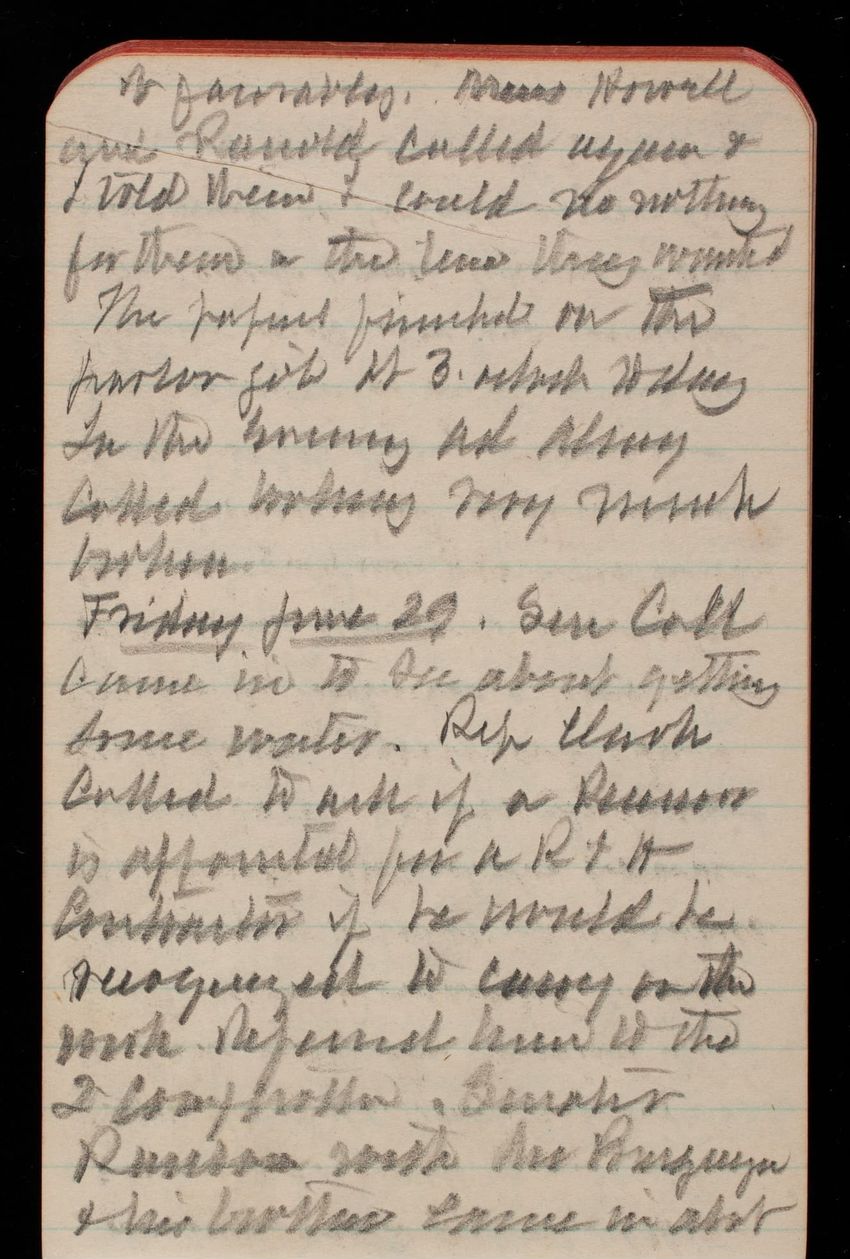 to favorably. Howell
and called again &
I told them I could do nothing
for them in the line they wanted
The papers finished on the
parlor job at 3. oclock today
In the evening
Called looking very much
broken
Friday June 29. Sen Colt
Came in to see about getting
some water. Rep Clark
Called to ask if a Receiver
is appointed for a R & H
Contractor if he would be
recognized to carry on the
work Referred him to the
2 Comptroller. Senator
Ransom with
& his brother came in abot